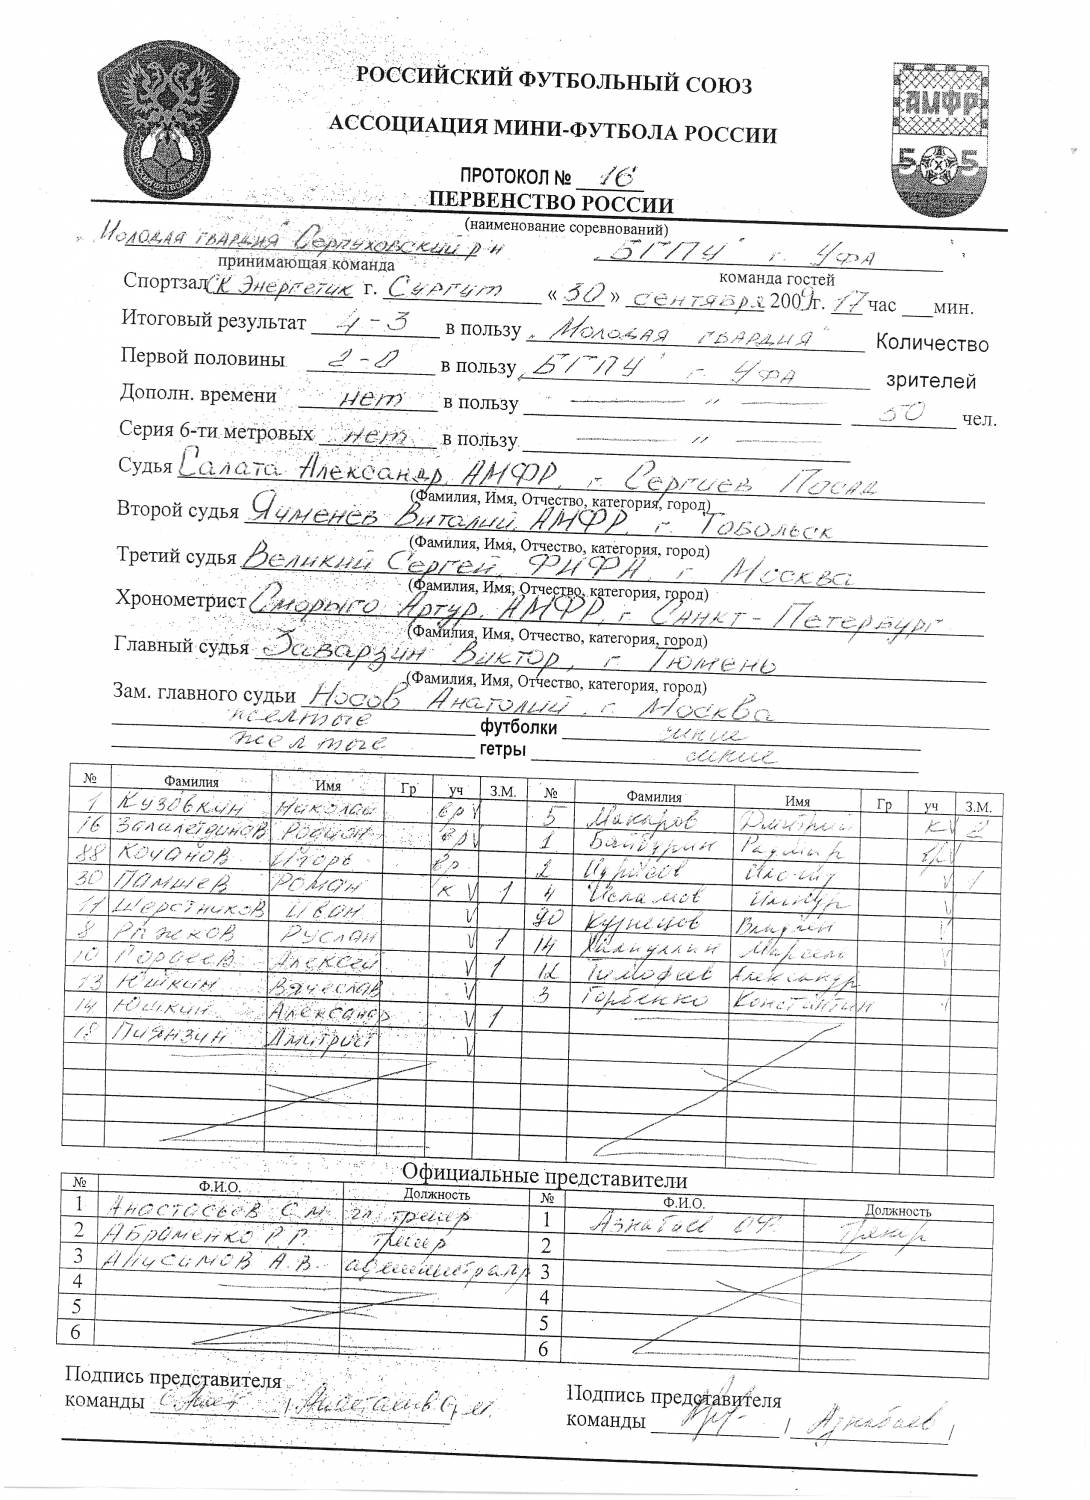 РОССИЙСКИЙ ФУТБОЛЬНЫЙ СОЮЗ
АССОЦИАЦИЯ МИНИ-ФУТБОЛА РОССИИ
АМФР
5 5
ПРОТОКОЛ № 16
ПЕРВЕНСТВО РОССИИ
(наименование соревнований)
"Молодая гвардия" Серпуховский р-н "БГПУ" г. Уфа
принимающая команда команда гостей
Спортзал СК Энергетик г. Сургут « 30 » сентября 2009г. 17 час ___ мин.
Итоговый результат 4-3 в пользу "Молодая гвардия" Количество
Первой половины 2-0 в пользу "БГПУ" г. Уфа зрителей
Дополн. времени нет в пользу — " — 50 чел.
Серия 6-ти метровых нет в пользу — " —
Судья Салата Александр, АМФР, г. Сергиев Посад
(Фамилия, Имя, Отчество, категория, город)
Второй судья Ячменёв Виталий, АМФР, г. Тобольск
(Фамилия, Имя, Отчество, категория, город)
Третий судья Великий Сергей, ФИФА, г. Москва
(Фамилия, Имя, Отчество, категория, город)
Хронометрист Сморыго Артур, АМФР, г. Санкт-Петербург
(Фамилия, Имя, Отчество, категория, город)
Главный судья Заварзин Виктор, г. Тюмень
(Фамилия, Имя, Отчество, категория, город)
Зам. главного судьи Носов Анатолий, г. Москва
желтые футболки синие
желтые гетры синие
№ Фамилия Имя Гр уч З.М. № Фамилия Имя Гр уч З.М.
1 Кузовкин Николай вр V 5 Макаров Дмитрий к V 2
16 Залилетдинов Родион вр V 1 Байбурин Радмир вр V
88 Кочанов Игорь вр 2 V 1
30 Памшев Роман к V 1 4 Исламов V
11 Шерстников Иван V 90 Кузнецов V
8 Рыжков Руслан V 1 14 Хайруллин Марсель
10 Гордеев Алексей V 1 12 Тимофеев Александр
13 Юшкин Вячеслав V 3 Горбенко Константин
14 Юшкин Александр V 1
18 Пиянзин Дмитрий V
Официальные представители
№ Ф.И.О. Должность № Ф.И.О. Должность
1 Анастасьев С.М. гл. тренер 1 Азнабаев О.Ф. Тренер
2 Абраменко Р.Г. тренер 2
3 Анисимов А.В. администратор 3
4 4
5 5
6 6
Подпись представителя Подпись представителя
команды команды Азнабаев